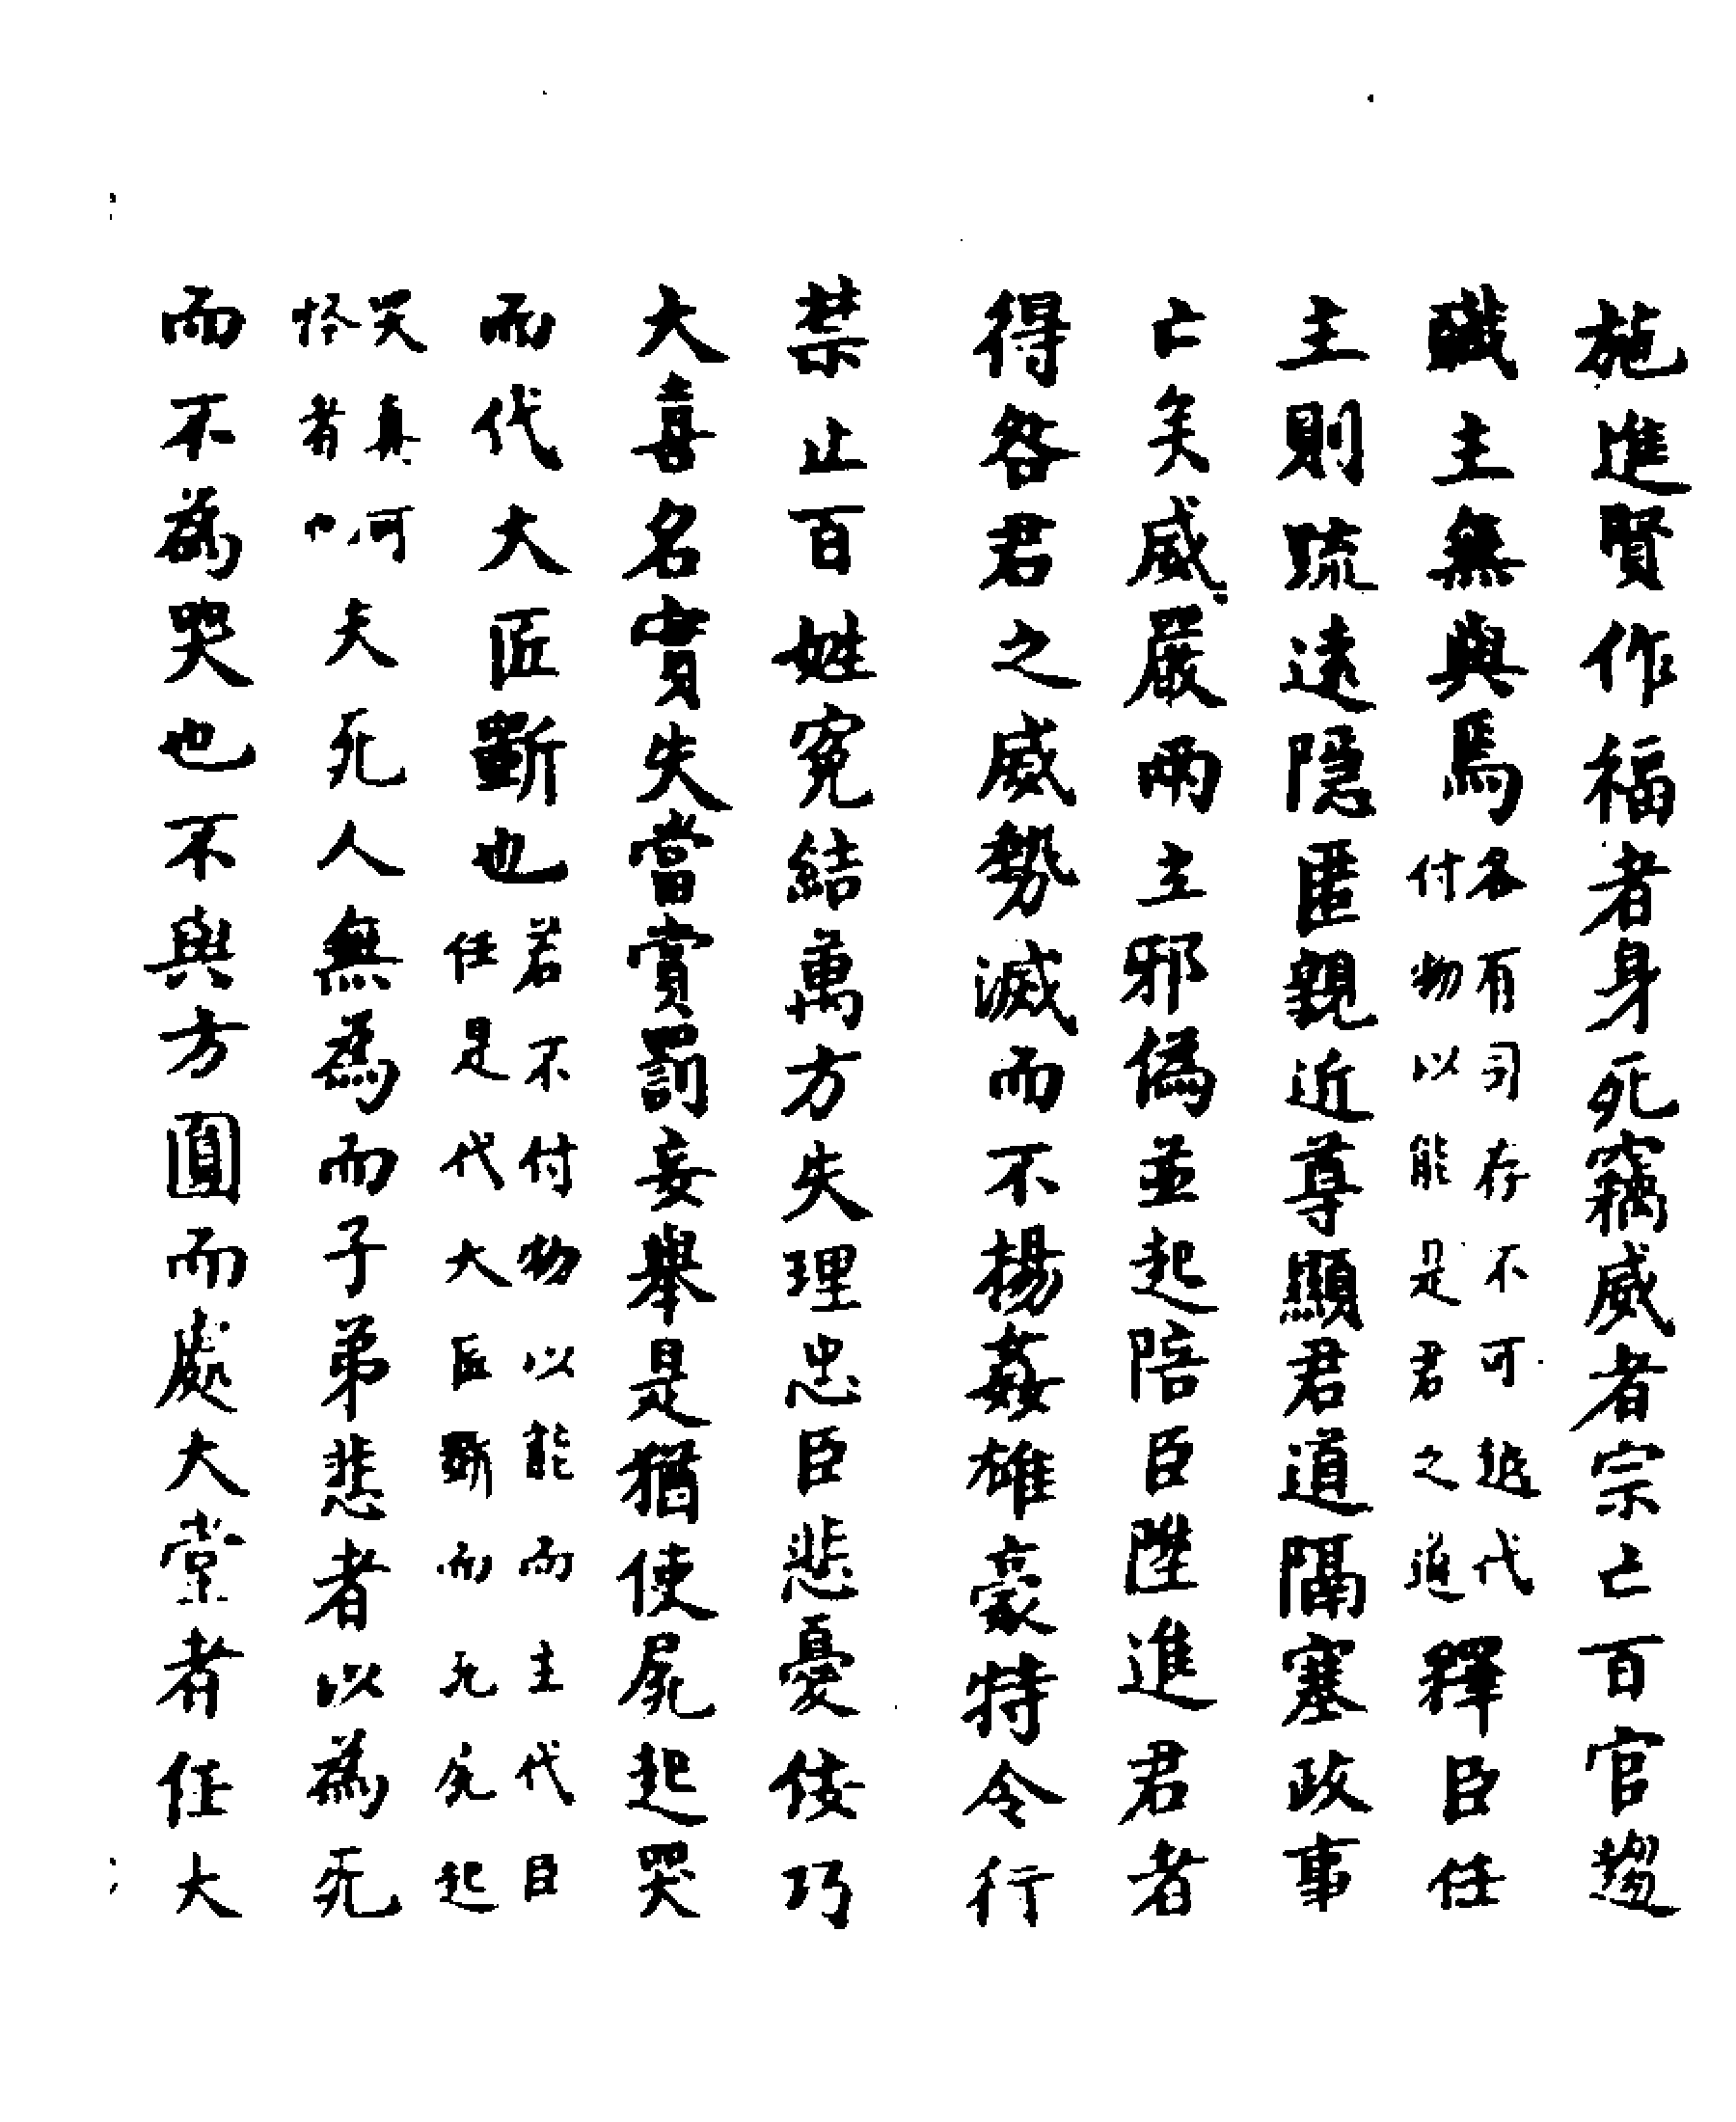 施進賢作福者身死竊威者宗亡百官趨
職主無與焉各有司存不可越代付物以能是君之道釋臣任
主則疏遠隱匿親近尊顯君道隔塞政事
亡矣威嚴兩主邪偽並起陪臣陞進君者
得咎君之威勢滅而不揚姦雄豪特令行
禁止百姓寃結萬方失理忠臣悲憂佞巧
大喜名實失當賞罰妄舉是猶使屍起哭
而代大匠斷也若不付物以能而主代臣任是代大匠斷而死屍起
哭真可怪者也夫死人無為而子弟悲者以為死
而不為哭也不與方圓而處大堂者任大